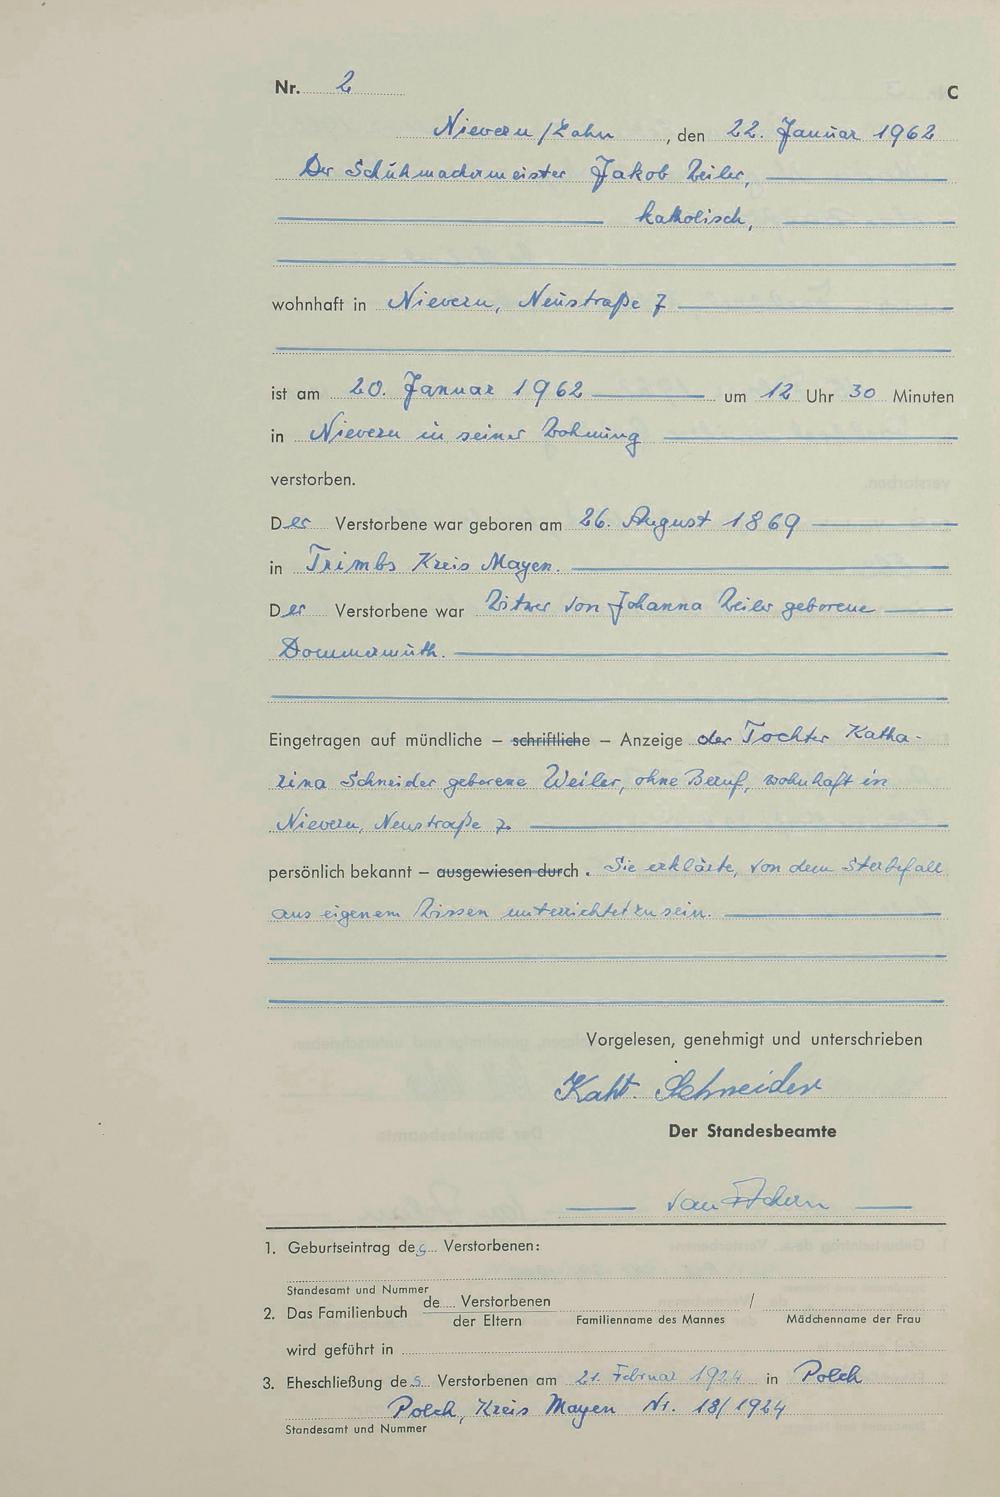 Nr. 2 C
Nievern/Lahn, den 22. Januar 1962
Der Schuhmachermeister Jakob Weiler,
katholisch,
wohnhaft in Nievern, Neustraße 7
ist am 20. Januar 1962 um 12 Uhr 30 Minuten
in Nievern in seiner Wohnung
verstorben.
Der Verstorbene war geboren am 26. August 1869
in Trimbs Kreis Mayen.
Der Verstorbene war Witwer von Johanna Weiler geborene
Dommermuth.
Eingetragen auf mündliche – schriftliche – Anzeige der Tochter Katha-
rina Schneider geborene Weiler, ohne Beruf, wohnhaft in
Nievern, Neustraße 7.
persönlich bekannt – ausgewiesen durch . Sie erklärte, von dem Sterbefall
aus eigenem Wissen unterrichtet zu sein.
Vorgelesen, genehmigt und unterschrieben
Kath. Schneider
Der Standesbeamte
van
1. Geburtseintrag des Verstorbenen:
Standesamt und Nummer
2. Das Familienbuch de Verstorbenen /
der Eltern Familienname des Mannes Mädchenname der Frau
wird geführt in
3. Eheschließung des Verstorbenen am 21. Februar 1924 in Polch
Polch, Kreis Mayen Nr. 18/1924
Standesamt und Nummer